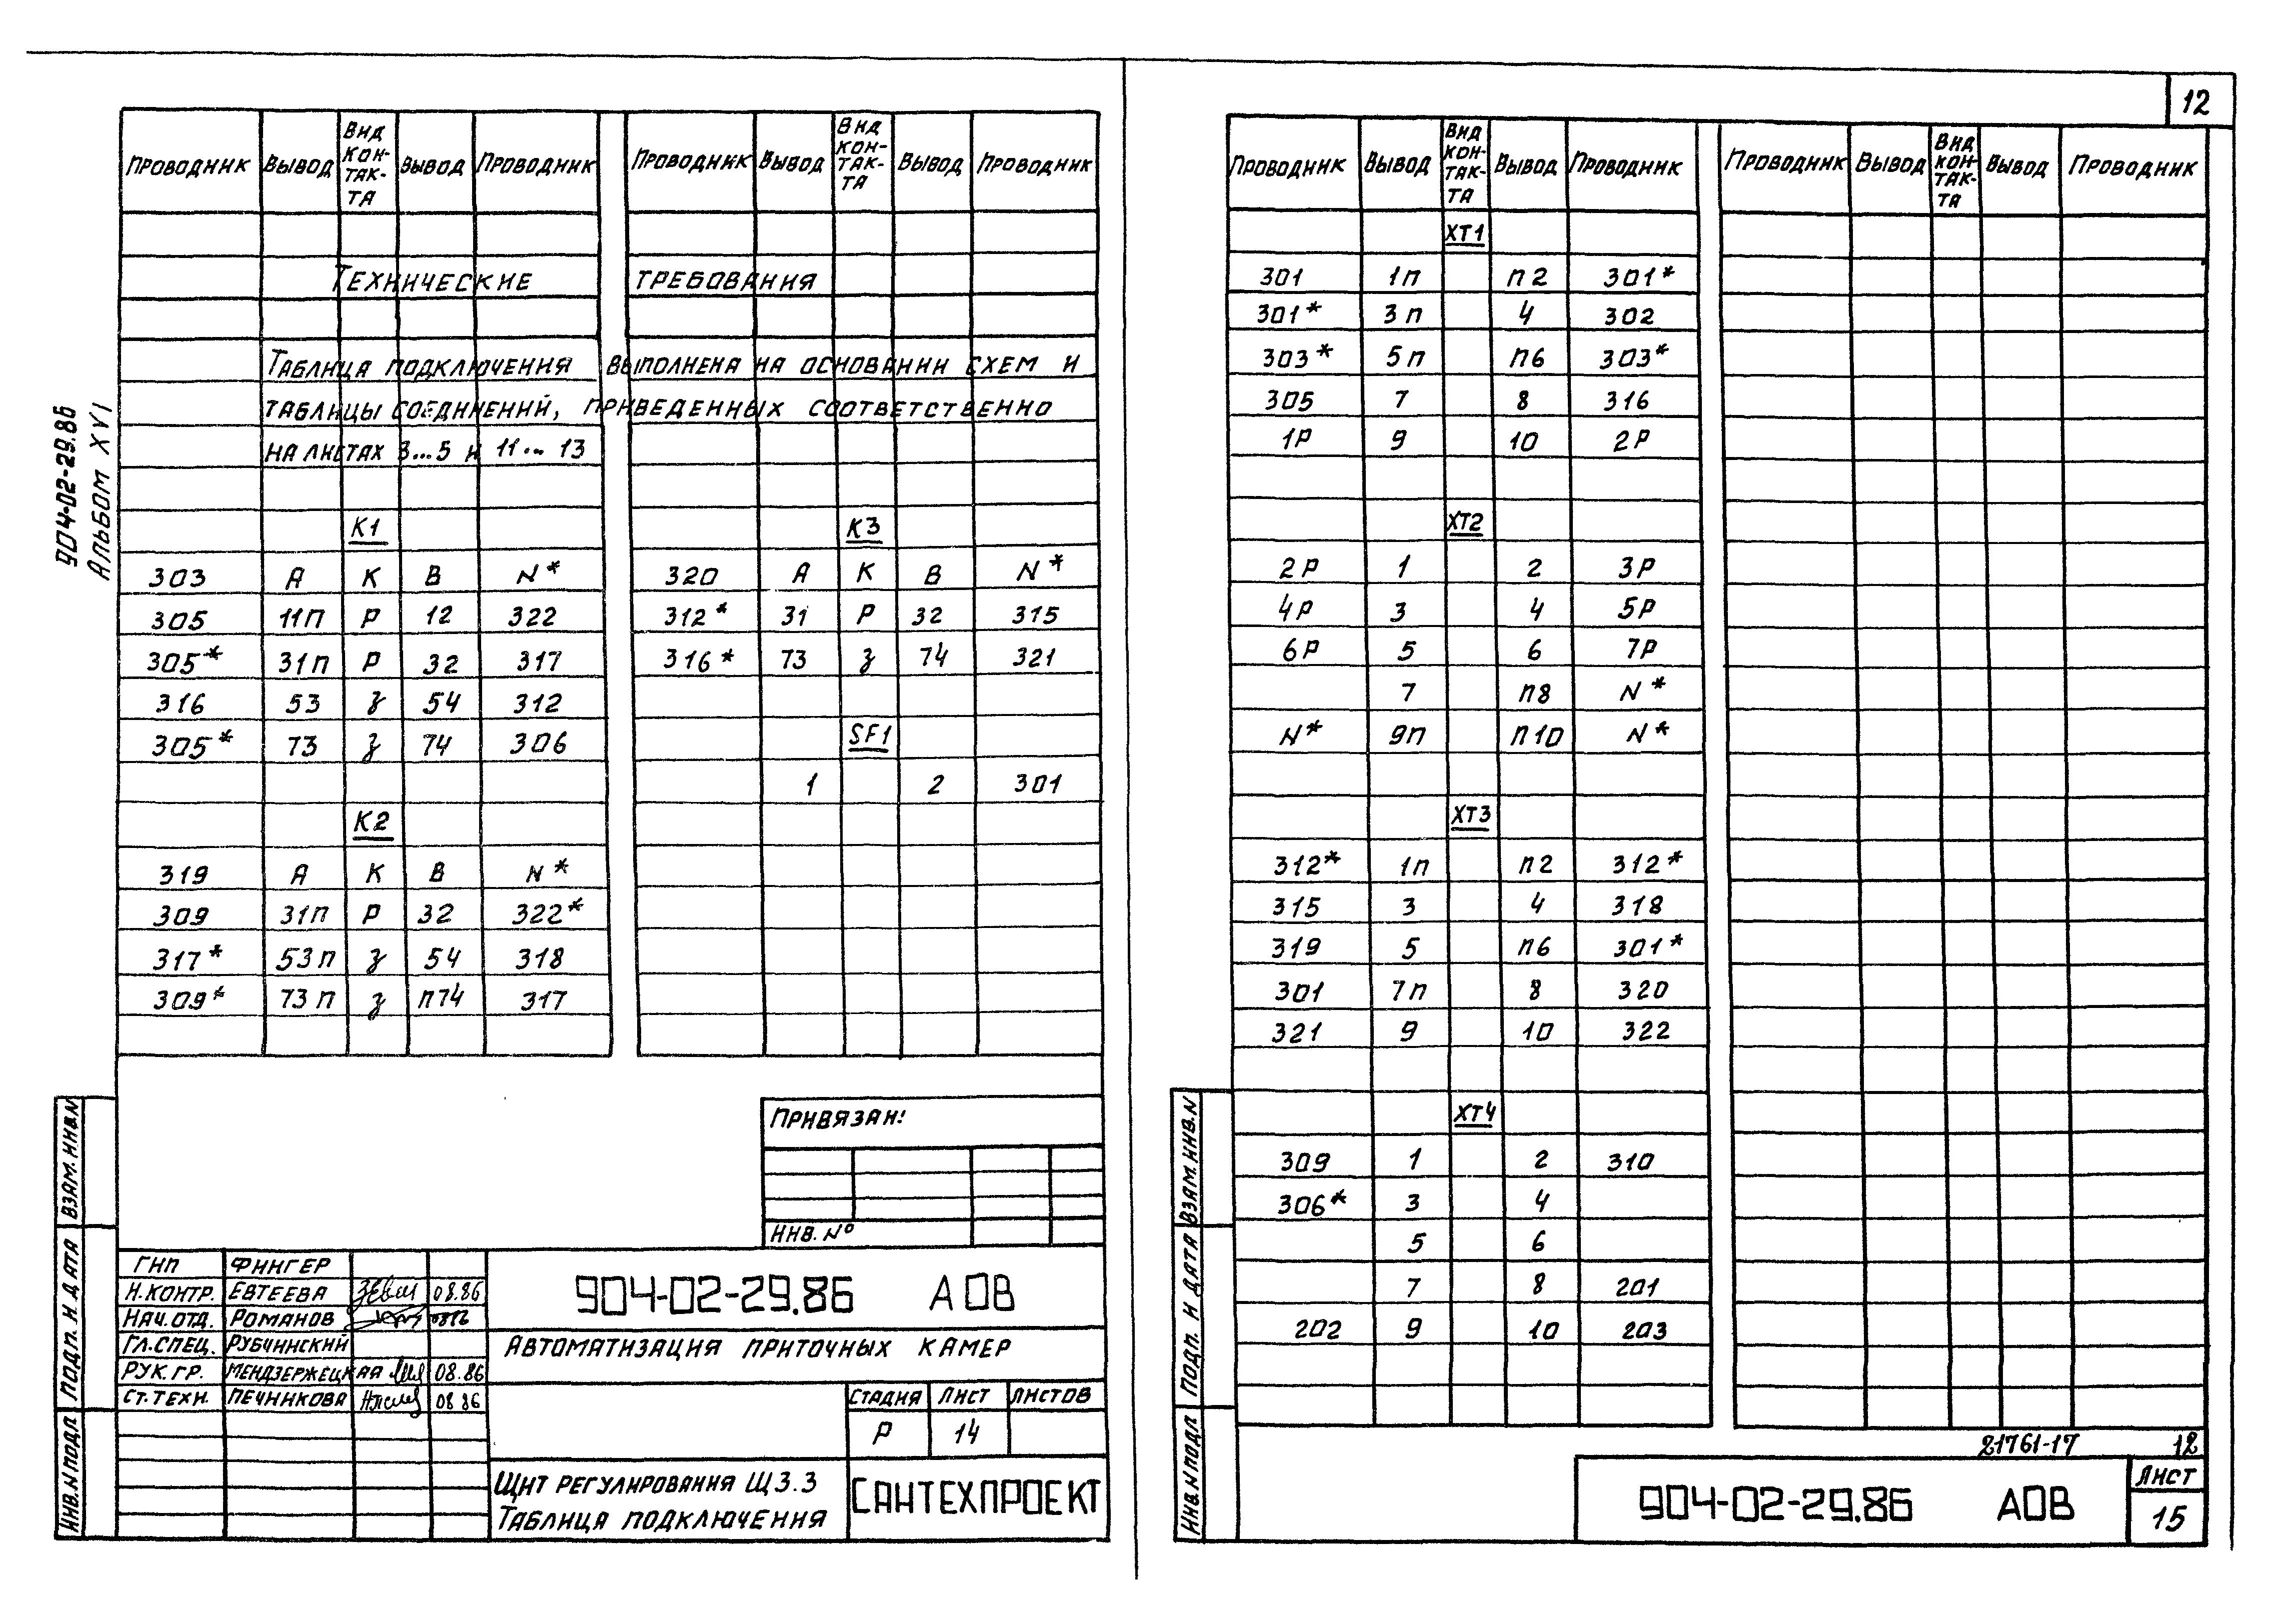 904-02-29.86
Альбом XVI
Проводник Вывод Вид контакта Вывод Проводник Проводник Вывод Вид контакта Вывод Проводник
Технические требования
Таблица подключения выполнена на основании схем и
таблицы соединений, приведенных соответственно
на листах 3...5 и 11... 13
К1 К3
303 А К В N* 320 А К В N*
305 11п Р 12 322 312* 31 Р 32 315
305* 31п Р 32 317 316* 73 з 74 321
316 53 з 54 312
305* 73 з 74 306 SF1
1 2 301
К2
319 А К В N*
309 31п Р 32 322*
317* 53п з 54 318
309* 73п з п74 317
Привязан:
Инв. №
ГИП Фингер
Н.контр. Евтеева 08.86
Нач.отд. Романов
Гл.спец. Рубчинский
Рук.гр. Мендзержецкая 08.86
Ст.техн. Печникова 08 86
904-02-29.86 АОВ
Автоматизация приточных камер
Стадия Лист Листов
Р 14
Щит регулирования Щ3.3
Таблица подключения
САНТЕХПРОЕКТ
Инв.N подл Подп. и дата Взам.инв.N
12
Проводник Вывод Вид контакта Вывод Проводник Проводник Вывод Вид контакта Вывод Проводник
ХТ1
301 1п п2 301*
301* 3п 4 302
303* 5п п6 303*
305 7 8 316
1Р 9 10 2Р
ХТ2
2Р 1 2 3Р
4Р 3 4 5Р
6Р 5 6 7Р
7 п8 N*
N* 9п п10 N*
ХТ3
312* 1п п2 312*
315 3 4 318
319 5 п6 301*
301 7п 8 320
321 9 10 322
ХТ4
309 1 2 310
306* 3 4
5 6
7 8 201
202 9 10 203
21761-17 12
904-02-29.86 АОВ
Лист
15
Инв.N подл Подп. и дата Взам.инв.N